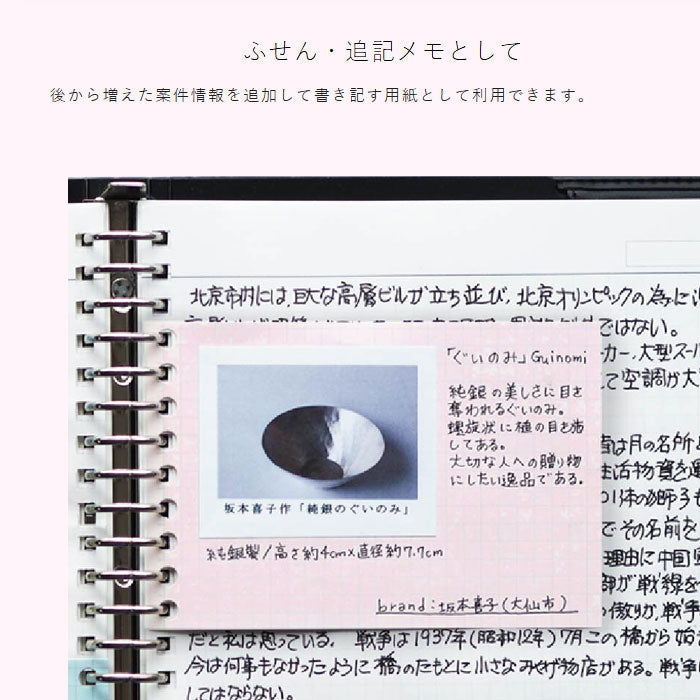 ふせん・追記メモとして
後から増えた案件情報を追加して書き記す用紙として利用できます。
北京市内には、巨大な高層ビルが立ち並び、北京オリンピックの為に
ではない。
「ぐいのみ」Guinomi
カー、大型スーパ
純銀の美しさに目を
て空調が大
奪われるぐいのみ。
螺旋状に植の目を施
してある。
大切な人への贈り物
にしたい逸品である。
坂本喜子作「純銀のぐいのみ」
純銀製/高さ約4cm×直径約7.7cm
は月の名所
生活物資を
でその名前を
理由に中国
部が戦線を
brand:坂本喜子(大仙市)
だと私は思っている。戦争は1937年(昭和12年)7月この橋から始
今は何事もなかったように橋のたもとに小さなみやげ物店がある。戦争
してはならない。